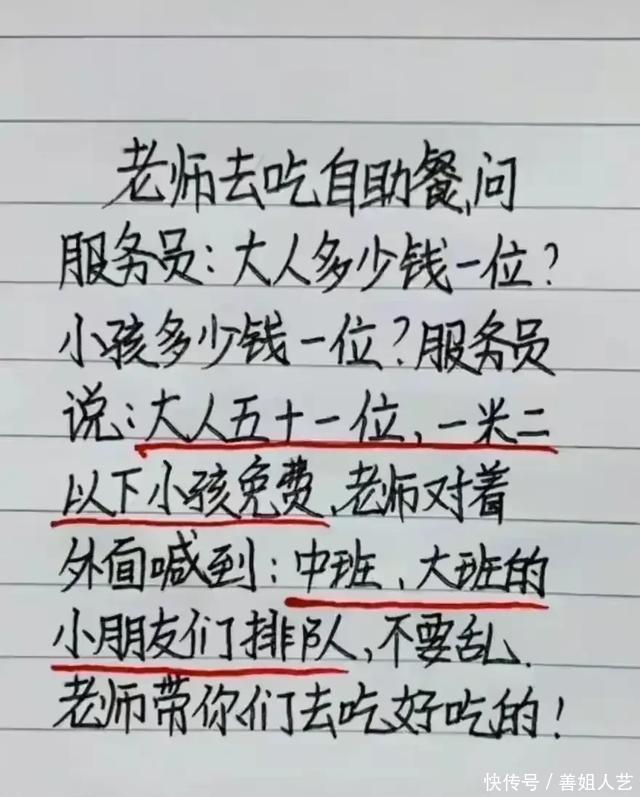 老师去吃自助餐,问
服务员:大人多少钱一位?
小孩多少钱一位?服务员
说:大人五十一位,一米二
以下小孩免费,老师对着
外面喊到:中班、大班的
小朋友们排队,不要乱.
老师带你们去吃好吃的!
快传号/善姐人艺